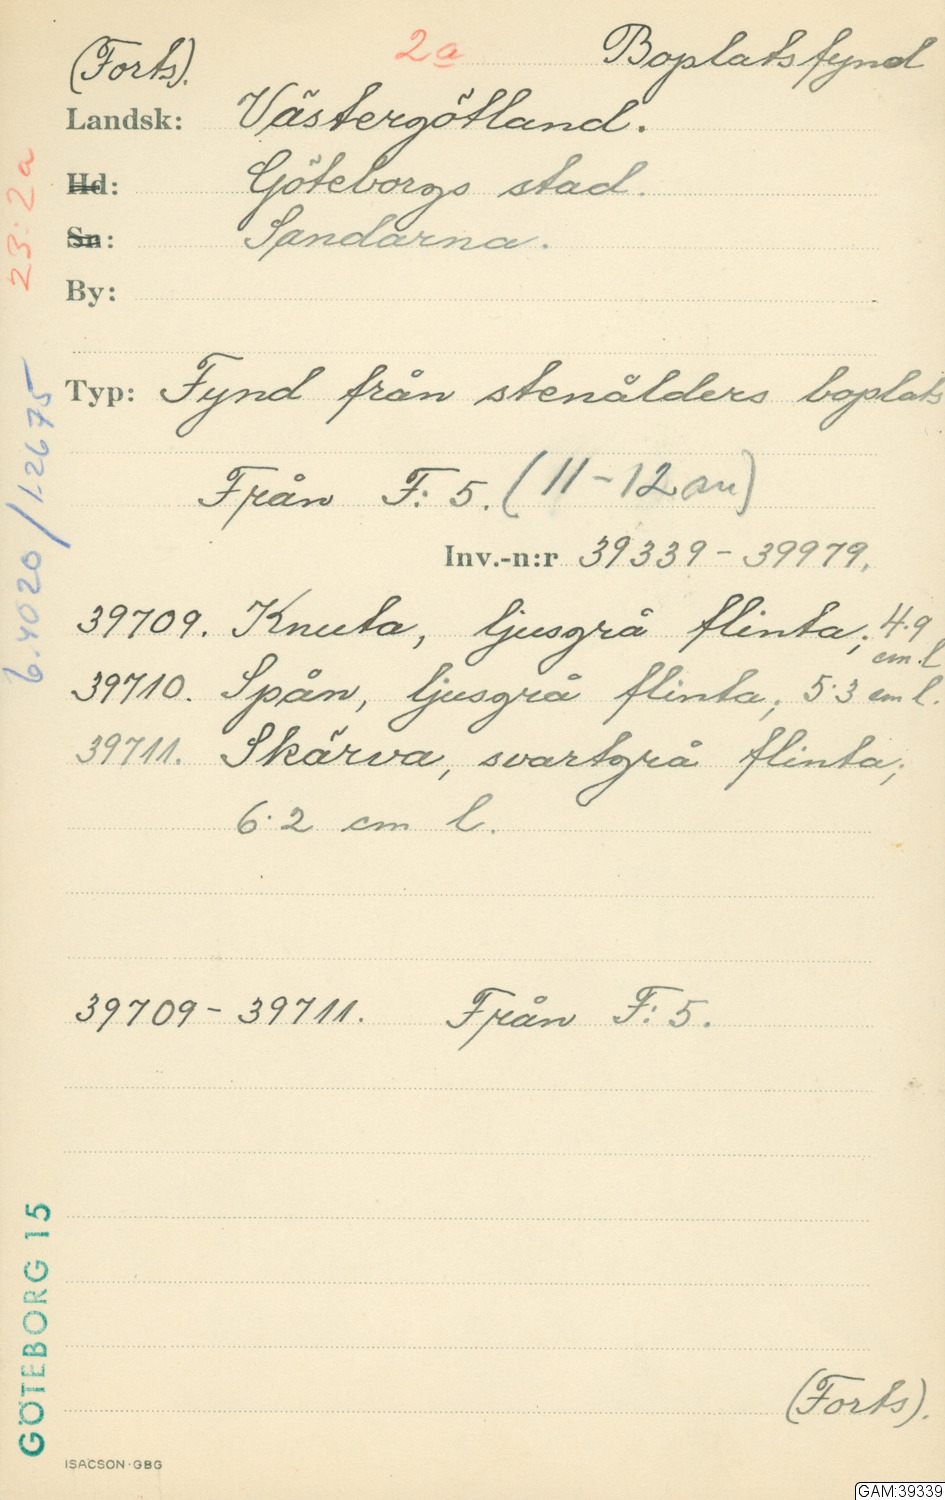 (Forts). 2a Boplatsfynd
Landsk: Västergötland.
Hd: Göteborgs stad.
Sn: Sandarna.
By:
Typ: Fynd från stenålders boplats
Från F: 5. (11-12 au)
Inv.-n:r 39339-39979.
39709. Knuta, ljusgrå flinta; 4.9 cm. l
39710. Spån, ljusgrå flinta; 5.3 cm l.
39711. Skärva, svartgrå flinta;
6.2 cm l.
39709-39711. Från F: 5.
(Forts).
ISACSON·GBG
GAM:39339
23:2a
6.4020/1.2675
GÖTEBORG 15